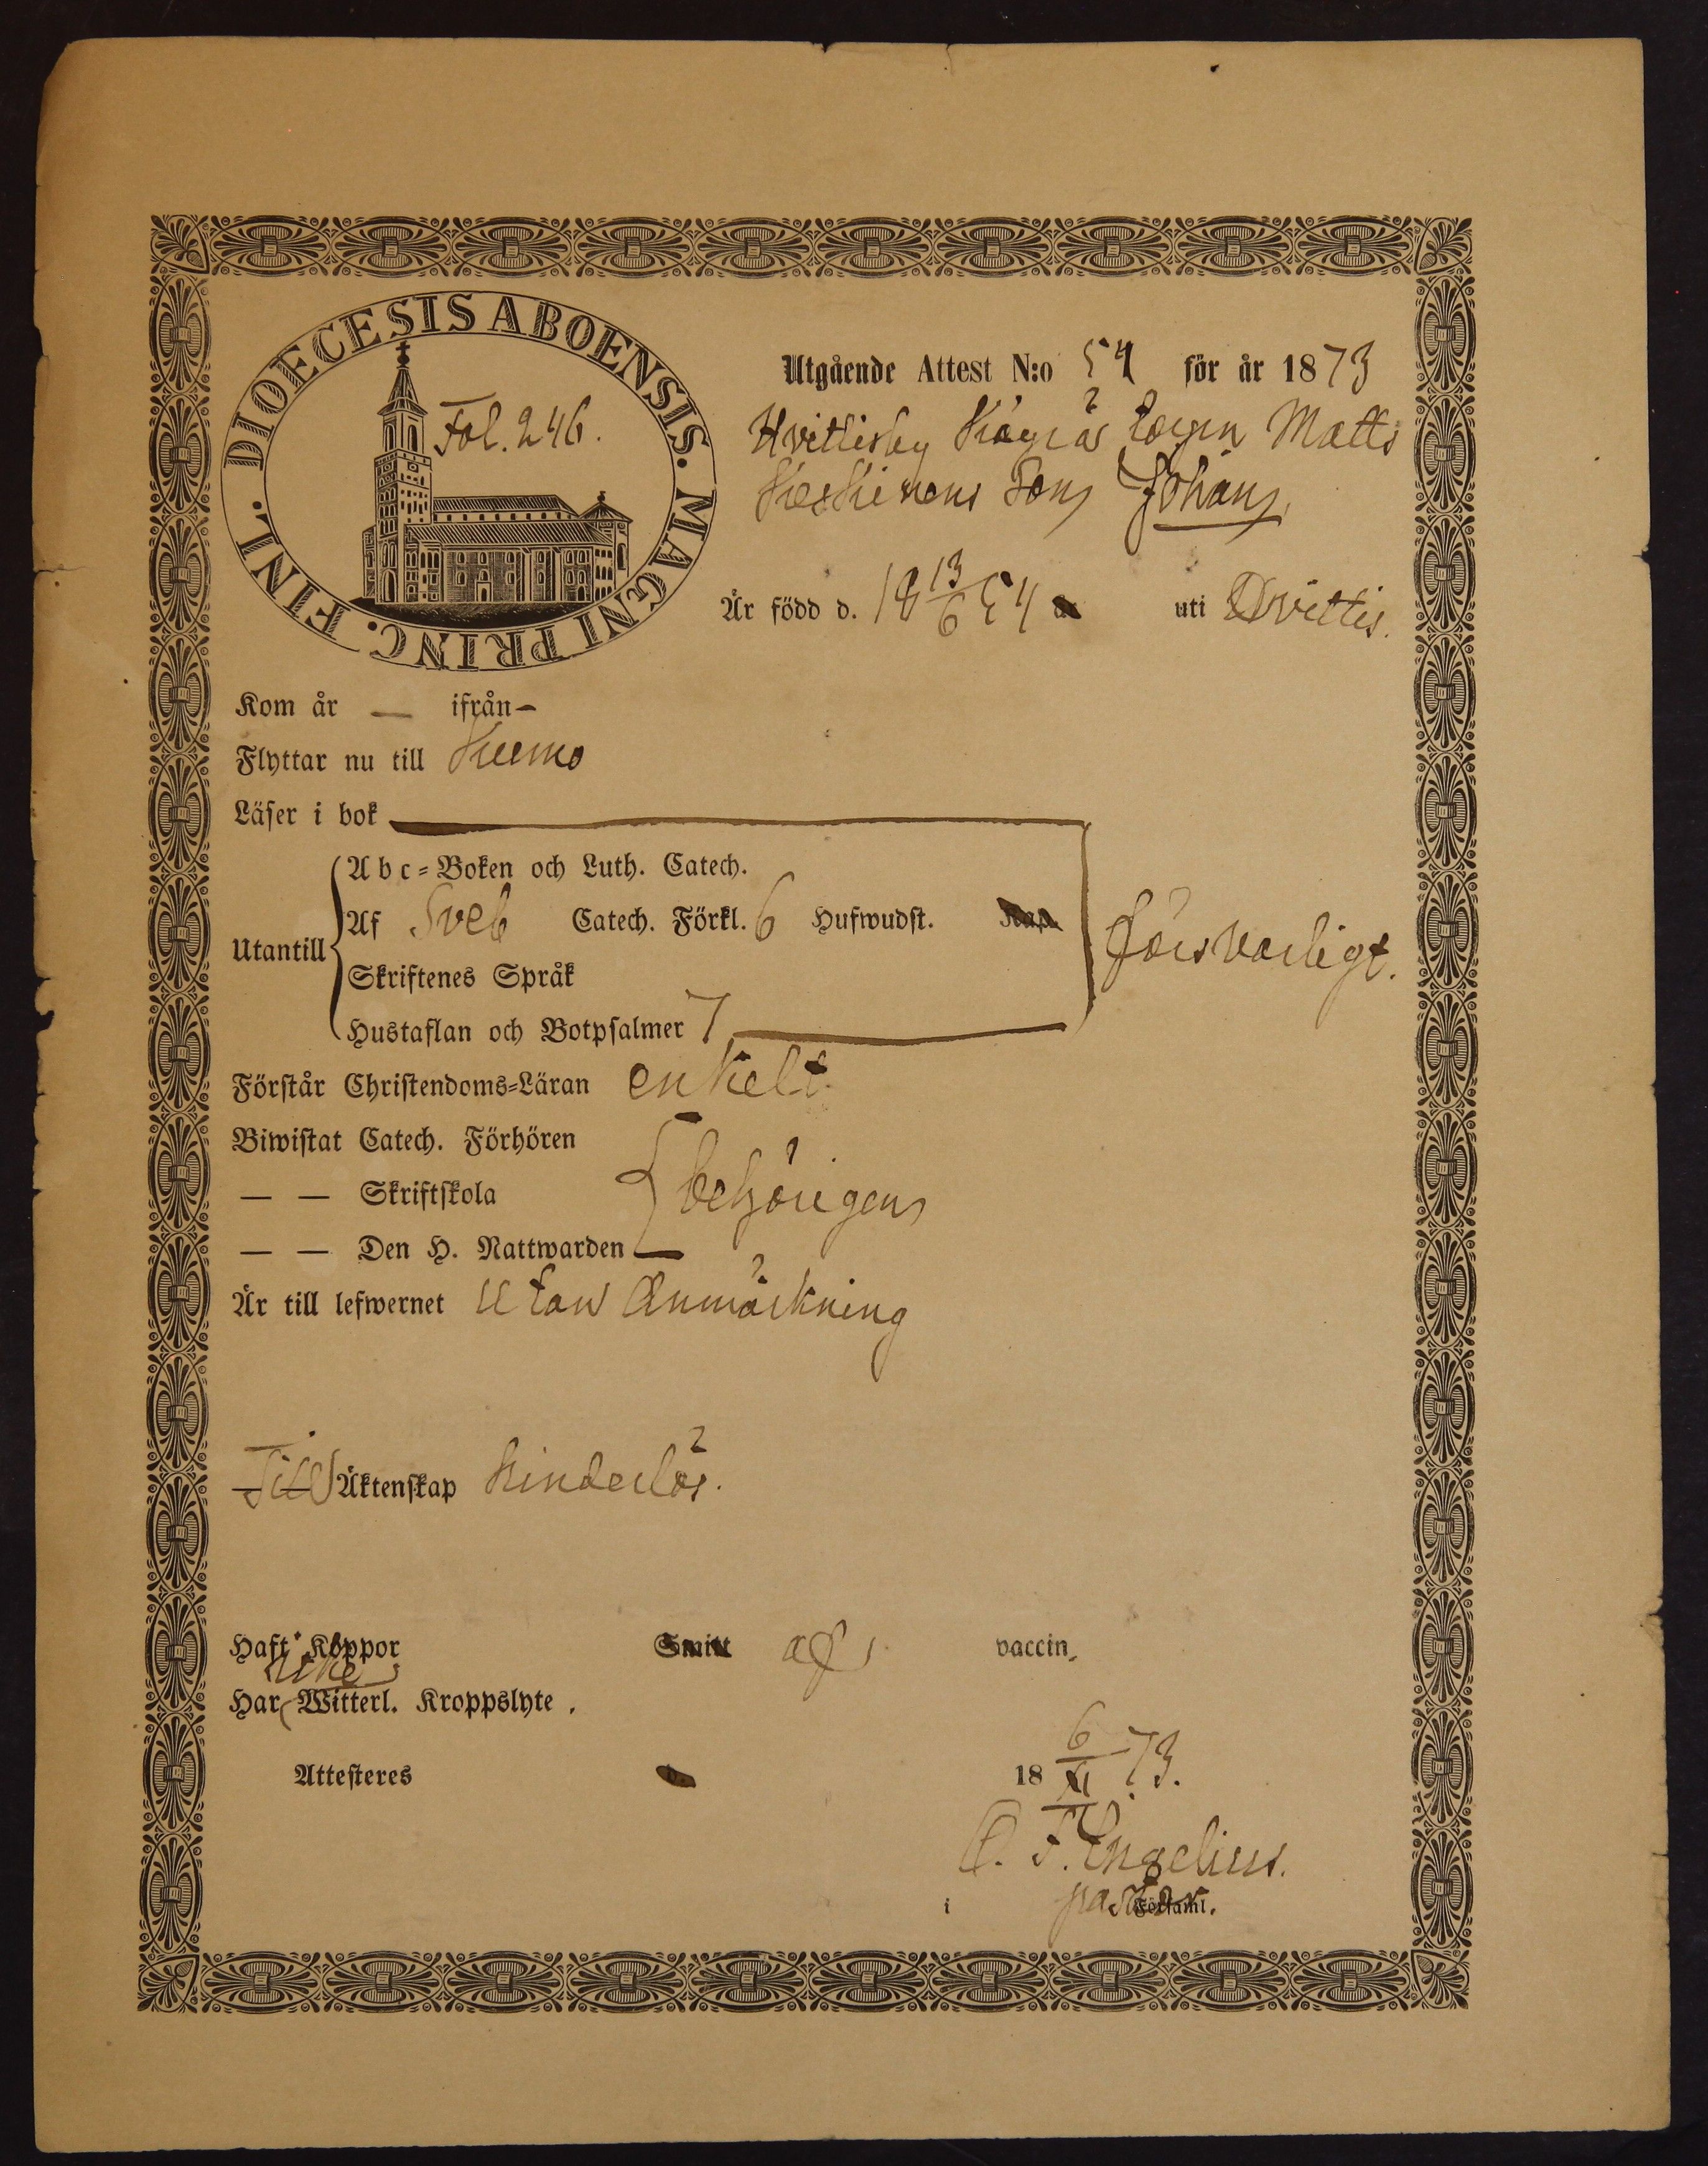 DIOECESIS ABOENSIS. MAGNI PRINC. FINL.
Fol. 246.
Utgående Attest N:o 54 för år 1873
Matts
Keskinens Son Johan,
Är född d. 18 13/6 54 uti Hvittis.
Kom år — ifrån —
Flyttar nu till Kumo
Läser i bok
Abc-Boken och Luth. Catech.
Utantill
Af Sveb Catech. Förkl. 6 Hufwudst.
Skriftenes Språk
Hustaflan och Botpsalmer 7
försvarligt.
Förstår Christendoms-Läran enkelt.
Biwistat Catech. Förhören
— — Skriftskola
behörigen
— — Den H. Nattwarden
Är till lefwernet utan Anmärkning
Till Äktenskap hinderlös.
Haft Koppor af vaccin,
icke
Har Witterl. Kroppslyte.
Attesteres 18 6/XI 73.
F. Engelius.
i pastor Församl.